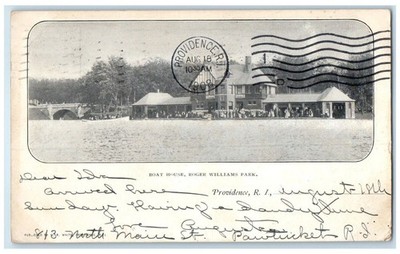 PROVIDENCE, R.I.
AUG 18
10 AM
1
BOAT HOUSE, ROGER WILLIAMS PARK,
Providence, R. I., August 18th
Dear Ida
arrived here
Sunday. Having a dandy time
Love Augusta
813 North Main St. Pawtucket R.I.